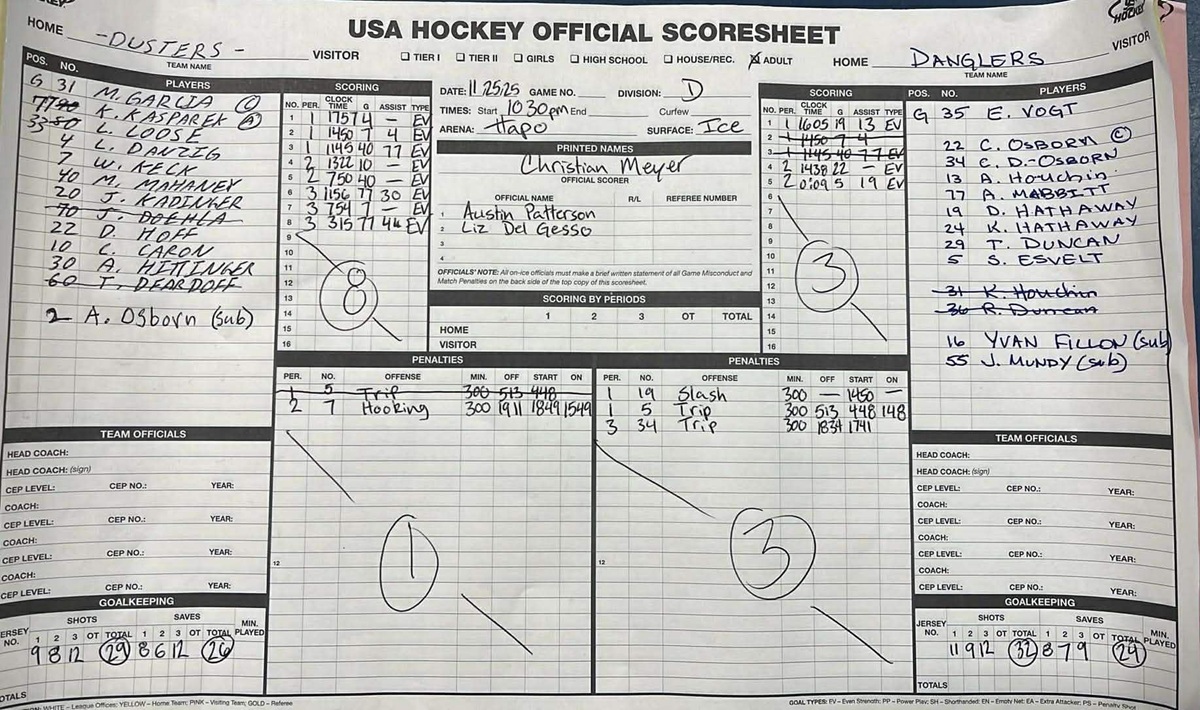 USA HOCKEY OFFICIAL SCORESHEET
HOME -DUSTERS- VISITOR
TEAM NAME
☐ TIER I ☐ TIER II ☐ GIRLS ☐ HIGH SCHOOL ☐ HOUSE/REC. ☒ ADULT
HOME DANGLERS VISITOR
TEAM NAME
POS. NO. PLAYERS
G 31 M. GARCIA
77 K. KASPAREK
35 L. LOOSE
4 L. DANZIG
7 W. KECK
40 M. MAHANEY
20 J. KADINGER
70 J. DOEHLA
22 D. HOFF
10 C. CARON
30 A. HITTINGER
60 T. DEARDOFF
2 A. Osborn (sub)
SCORING
NO. PER. CLOCK TIME G ASSIST TYPE
1 1 1757 4 - EV
2 1 1450 7 4 EV
3 1 1145 40 77 EV
4 2 1322 10 - EV
5 2 750 40 - EV
6 3 1156 77 30 EV
7 3 754 7 - EV
8 3 315 77 4 EV
9
10
11
12
13
14
15
16
8
DATE: 11 25 25 GAME NO. DIVISION: D
TIMES: Start 10 30pm End Curfew
ARENA: Hapo SURFACE: Ice
PRINTED NAMES
Christian Meyer
OFFICIAL SCORER
OFFICIAL NAME R/L REFEREE NUMBER
1 Austin Patterson
2 Liz Del Gesso
3
4
OFFICIALS' NOTE: All on-ice officials must make a brief written statement of all Game Misconduct and
Match Penalties on the back side of the top copy of this scoresheet.
SCORING BY PERIODS
1 2 3 OT TOTAL
HOME
VISITOR
SCORING
NO. PER. CLOCK TIME G ASSIST TYPE
1 1 1605 19 13 EV
2 1 1450 7 4
3 1 1145 40 77 EV
4 2 1438 22 - EV
5 2 0:09 5 19 EV
6
7
8
9
10
11
12
13
14
15
16
3
POS. NO. PLAYERS
G 35 E. VOGT
22 C. OSBORN Ⓒ
34 C. D.-OSBORN
13 A. Houchin
77 A. MABBITT
19 D. HATHAWAY
24 K. HATHAWAY
29 T. DUNCAN
5 S. ESVELT
31 K. Houchin
36 R. Duncan
16 YVAN FILLON (sub)
55 J. MUNDY (sub)
PENALTIES
PER. NO. OFFENSE MIN. OFF START ON
1 5 Trip 300 513 448
2 7 Hooking 300 1911 1849 1549
12
1
PENALTIES
PER. NO. OFFENSE MIN. OFF START ON
1 19 Slash 300 - 1450 -
1 5 Trip 300 513 448 148
3 34 Trip 300 1834 1741
12
3
TEAM OFFICIALS
HEAD COACH:
HEAD COACH: (sign)
CEP LEVEL: CEP NO.: YEAR:
COACH:
CEP LEVEL: CEP NO.: YEAR:
COACH:
CEP LEVEL: CEP NO.: YEAR:
COACH:
CEP LEVEL: CEP NO.: YEAR:
GOALKEEPING
SHOTS SAVES
JERSEY NO. 1 2 3 OT TOTAL 1 2 3 OT TOTAL MIN. PLAYED
9 8 12 29 8 6 12 26
TOTALS
TEAM OFFICIALS
HEAD COACH:
HEAD COACH: (sign)
CEP LEVEL: CEP NO.: YEAR:
COACH:
CEP LEVEL: CEP NO.: YEAR:
COACH:
CEP LEVEL: CEP NO.: YEAR:
COACH:
CEP LEVEL: CEP NO.: YEAR:
GOALKEEPING
SHOTS SAVES
JERSEY NO. 1 2 3 OT TOTAL 1 2 3 OT TOTAL MIN. PLAYED
11 9 12 32 8 7 9 24
TOTALS
WHITE – League Offices; YELLOW – Home Team; PINK – Visiting Team; GOLD – Referee
GOAL TYPES: EV – Even Strength; PP – Power Play; SH – Shorthanded; EN – Empty Net; EA – Extra Attacker; PS – Penalty Shot